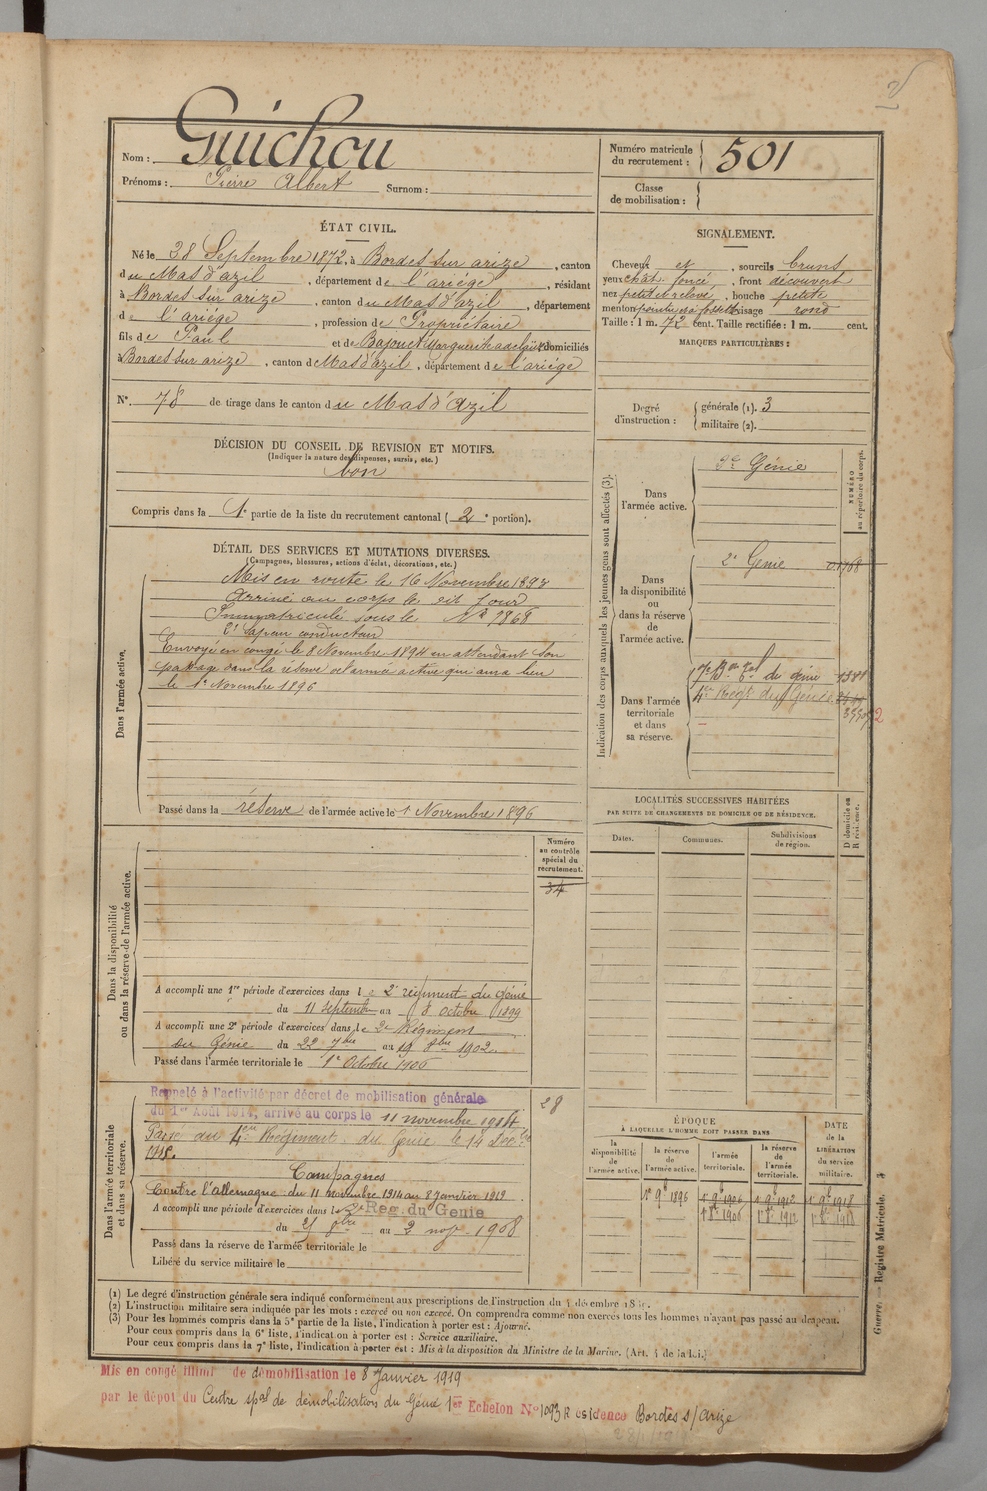 2
Nom : Guichou
Prénoms : Pierre Albert Surnom :
Numéro matricule du recrutement : 501
Classe de mobilisation :
ÉTAT CIVIL.
Né le 28 Septembre 1872, à Bordes sur arize, canton
du Mas d'azil, département de l'ariége, résidant
à Bordes sur arize, canton du Mas d'azil, département
de l'ariége, profession de Propriétaire
fils de Paul et de Bajou Marguerite, domiciliés
à Bordes sur arize, canton de Mas d'azil, département de l'ariége
N°. 78 de tirage dans le canton du Mas d'Azil
SIGNALEMENT.
Cheveux et, sourcils bruns
yeux chât. foncé, front découvert
nez petit et relevé, bouche petite
menton pointu à fossette visage rond
Taille : 1 m. 72 cent. Taille rectifiée : 1 m. cent.
MARQUES PARTICULIÈRES :
Degré d'instruction : générale (1). 3
militaire (2).
DÉCISION DU CONSEIL DE REVISION ET MOTIFS.
(Indiquer la nature des dispenses, sursis, etc.)
bon
Compris dans la 1e partie de la liste du recrutement cantonal ( 2e portion).
DÉTAIL DES SERVICES ET MUTATIONS DIVERSES.
(Campagnes, blessures, actions d'éclat, décorations, etc.)
Dans l'armée active.
Mis en route le 16 Novembre 1893
Arrivé au corps le dit jour
Immatriculé sous le N° 9868
2e Sapeur conducteur
Envoyé en congé le 8 Novembre 1894 en attendant son
passage dans la réserve de l'armée active qui aura lieu
le 1e Novembre 1896
Passé dans la réserve de l'armée active le 1 Novembre 1896
Indication des corps auxquels les jeunes gens sont affectés (3).
NUMÉRO au répertoire du corps.
Dans l'armée active.
2e Génie
Dans la disponibilité ou dans la réserve de l'armée active.
2e Génie
Dans l'armée territoriale et dans sa réserve.
17e Bon Tal du génie
4e Régt du Génie
LOCALITÉS SUCCESSIVES HABITÉES
PAR SUITE DE CHANGEMENTS DE DOMICILE OU DE RÉSIDENCE.
Dates. Communes. Subdivisions de région. D domicile ou R résidence.
Dans la disponibilité ou dans la réserve de l'armée active.
Numéro au contrôle spécial du recrutement.
34
A accompli une 1re période d'exercices dans le 2e régiment du génie
du 11 septembre au 8 octobre 1899
A accompli une 2e période d'exercices dans le 2e Régiment
du Génie du 22 7bre au 19 8bre 1902
Passé dans l'armée territoriale le 1e Octobre 1906
Dans l'armée territoriale et dans sa réserve.
Rappelé à l'activité par décret de mobilisation générale
du 1er Août 1914, arrivé au corps le 11 novembre 1914
28
Passé au 4ème Régiment du Génie le 14 Déc.
1918.
Campagnes
Contre l'allemagne du 11 novembre 1914 au 8 janvier 1919
A accompli une période d'exercices dans le 2e Reg. du Genie
du 25 8bre au 2 nov 1908
Passé dans la réserve de l'armée territoriale le
Libéré du service militaire le
ÉPOQUE
À LAQUELLE L'HOMME DOIT PASSER DANS
DATE de la LIBÉRATION du service militaire.
la disponibilité de l'armée active. la réserve de l'armée active. l'armée territoriale. la réserve de l'armée territoriale.
1e 9b 1896 1e 9b 1906 1e 9b 1912 1e 9b 1918
1e 8b 1906 1e 8b 1912 1e 8b 1918
Guerre. — Registre Matricule.
(1) Le degré d'instruction générale sera indiqué conformément aux prescriptions de l'instruction du
(2) L'instruction militaire sera indiquée par les mots : exercé ou non exercé. On comprendra comme non exercés tous les hommes n'ayant pas passé au drapeau.
(3) Pour les hommes compris dans la 5e partie de la liste, l'indication à porter est : Ajourné.
Pour ceux compris dans la 6e liste, l'indication à porter est : Service auxiliaire.
Pour ceux compris dans la 7e liste, l'indication à porter est : Mis à la disposition du Ministre de la Marine. (Art. 4 de la loi.)
Mis en congé illimi de démobilisation le 8 Janvier 1919
par le dépot du Centre spal de démobilisation du Génie 1er Echelon N° 1093 Residence Bordes s/ Arize